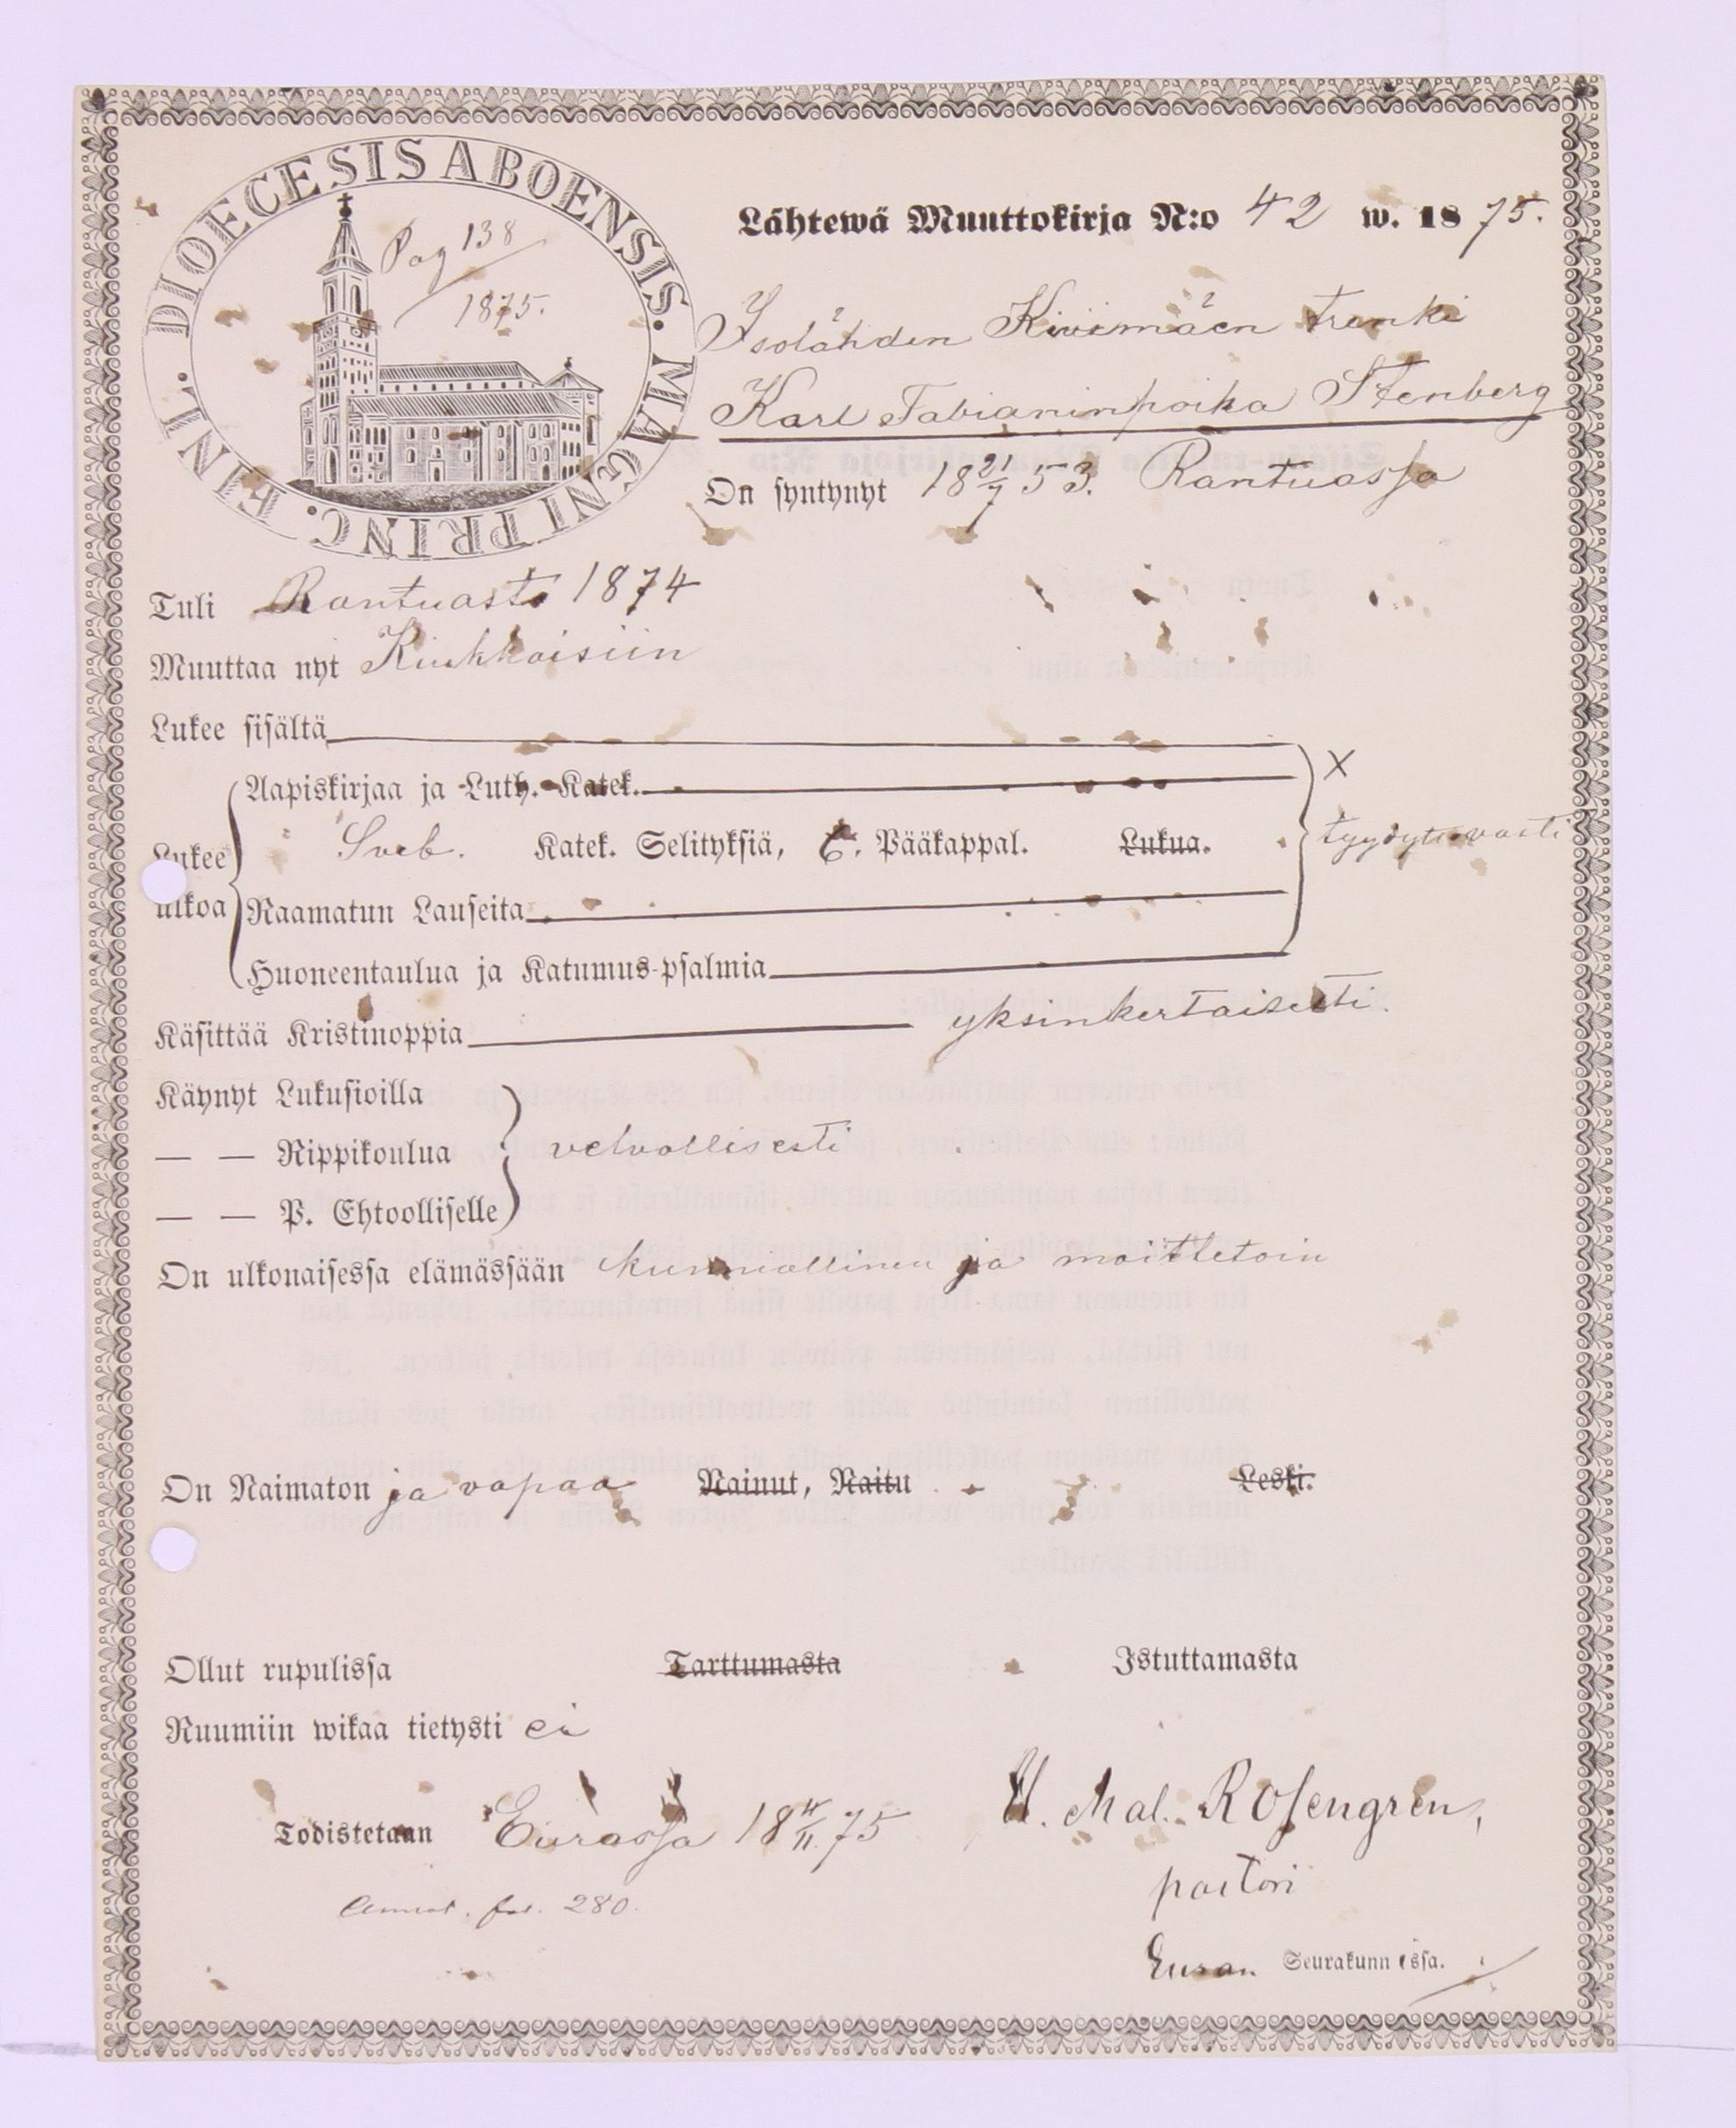 DIOECESIS ABOENSIS. MAGNI PRINC. FINL.
Pag 138
1875.
Lähtewä Muuttokirja N:o 42 w. 1875.
Isolähden Kivimäen trenki
Karl Fabianinpoika Stenberg
On syntynyt 18 21/7 53. Rantuassa
Tuli Rantuasta 1874
Muuttaa nyt Kiukkaisiin
Lukee sisältä
Aapiskirjaa ja Luth. Katek.
X
Lukee ulkoa
Sveb. Katek. Selityksiä, 6. Pääkappal. Lukua.
tyydyttävästi
Raamatun Lauseita
Huoneentaulua ja Katumus-psalmia
Käsittää Kristinoppia yksinkertaisesti.
Käynyt Lukusioilla
— — Rippikoulua velvollisesti
— — P. Ehtoolliselle
On ulkonaisessa elämässään kunniallinen ja moittetoin
On Naimaton ja vapaa Nainut, Naitu Leski.
Ollut rupulissa Tarttumasta Istuttamasta
Ruumiin wikaa tietysti ei
Todistetaan Eurassa 18 4/11 75
K. Mal. Rosengren,
pastori
Annot. fol. 280.
Euran Seurakunnissa.